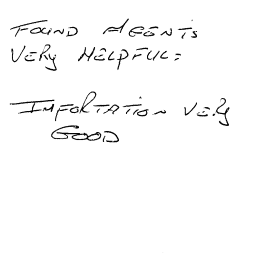 FOUND AGENTS
VERY HELPFUL:
IMFORTATION VERY
GOOD